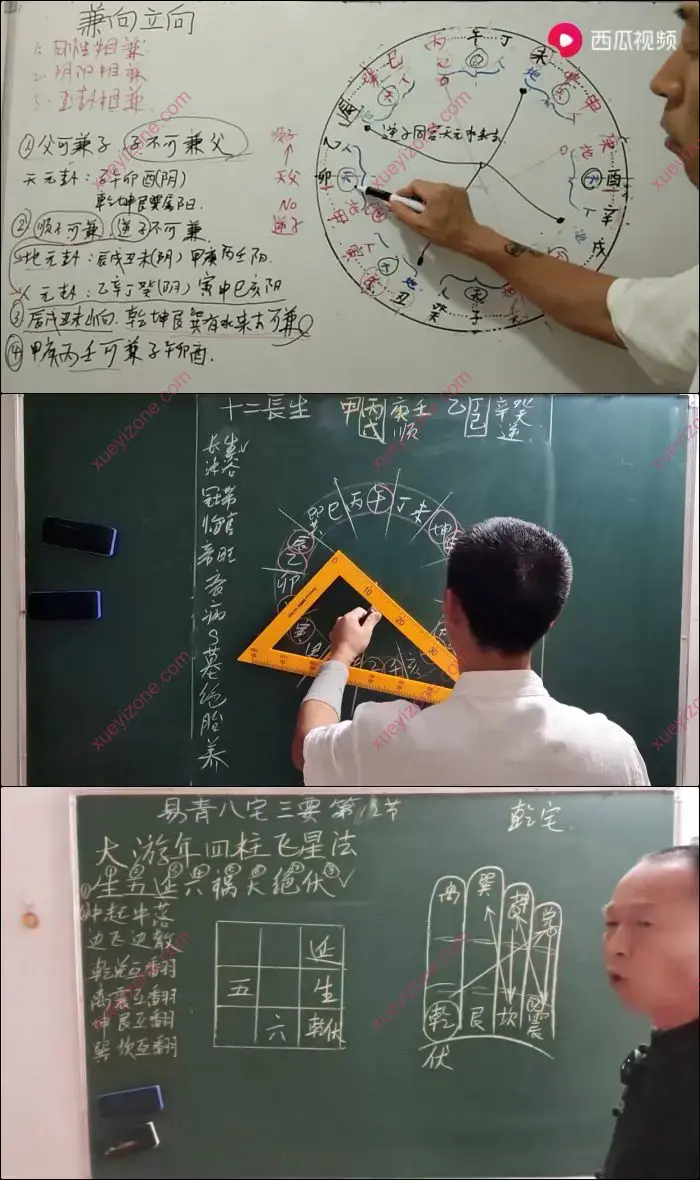 兼向立向
西瓜视频
1. 同性相兼
2. 阴阳相兼
3. 五卦相兼
①父可兼子 子不可兼父
天元卦：子午卯酉(阴)
乾坤艮巽属阳.
顺子
天父
NO
逆子
②顺子可兼 逆子不可兼
地元卦：辰戌丑未(阴) 甲庚丙壬阳.
人元卦：乙辛丁癸(阴) 寅申巳亥阳
③辰戌丑未山向. 乾坤艮巽有水来去可兼
④甲庚丙壬可兼子午卯酉.
逆子同宫天元水来去
午丁
未
申
酉
辛
戌
子
癸
丑
卯
乙
辰
巳
丙
xueyizone.com
十二長生
甲丙戊庚壬顺
乙丁己辛癸逆
长生
沐浴
冠带
临官
帝旺
衰
病
死
墓
绝
胎
养
巽巳丙午丁未坤
辰
乙
卯
亥
xueyizone.com
易青八宅三要第12节
乾宅
大游年四柱飞星法
①生五延六祸天绝伏
②中起中落
边飞边散
乾兑互翻
离震互翻
坤艮互翻
巽坎互翻
延
五
生
六
乾伏
离
巽
坤
兑
乾
艮
坎
震
伏
xueyizone.com